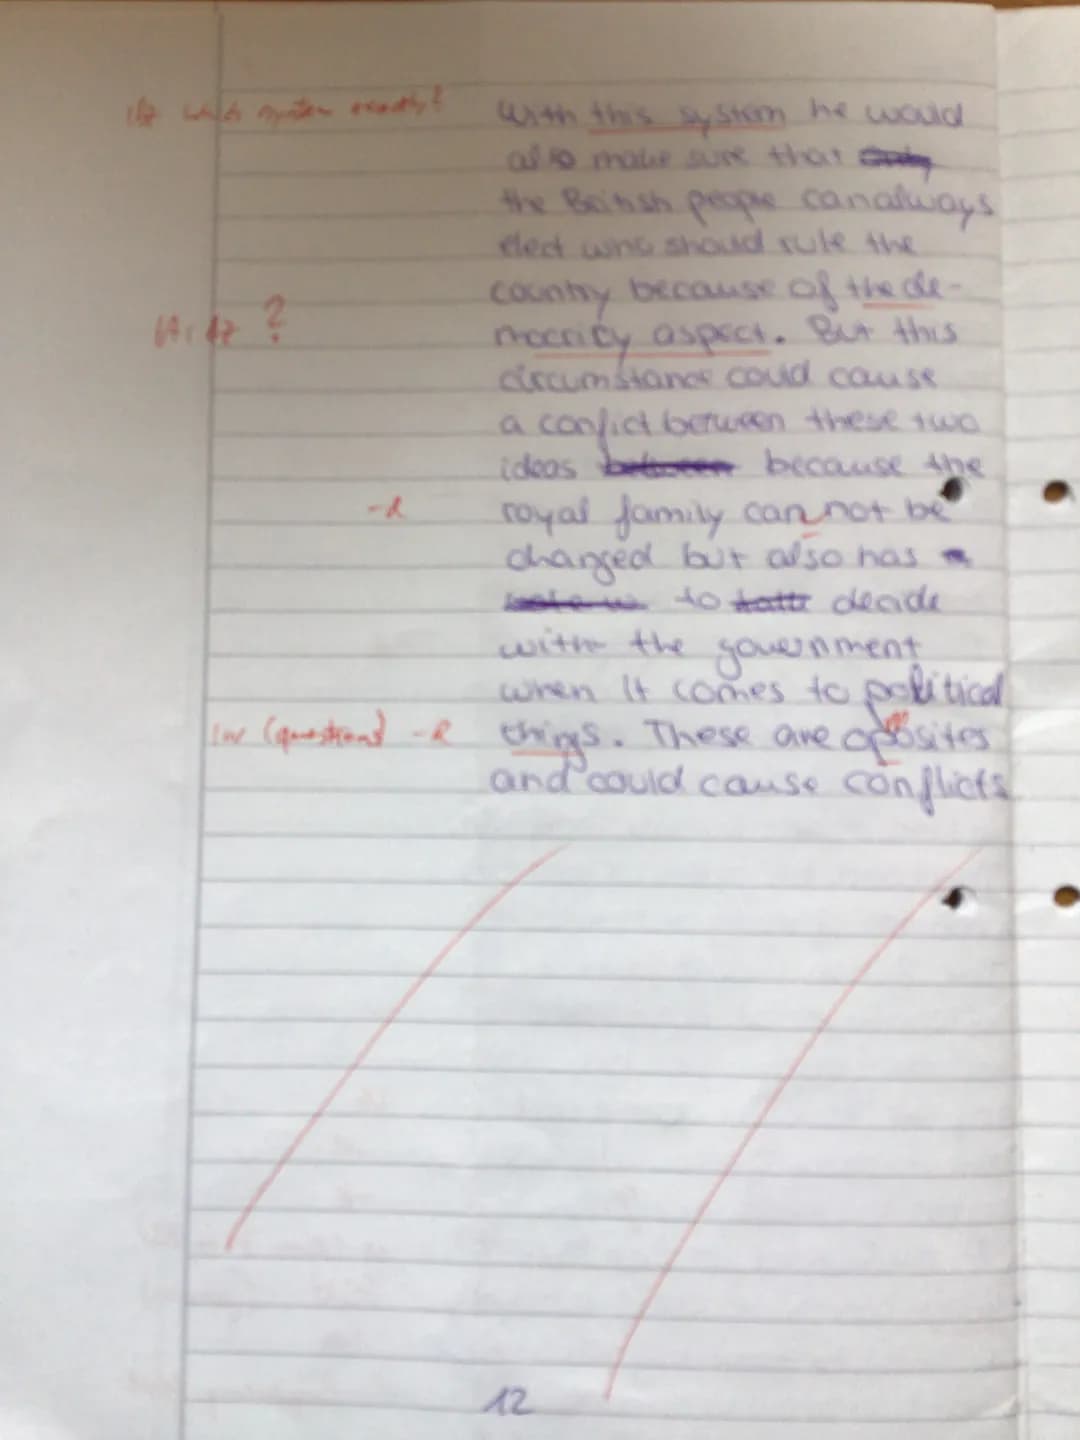 which system exactly?
With this system he would
also make sure that
the British people can always
elect who should rule the
country because of the de-
mocrity aspect. But this
?
circumstance could cause
a confict between these two
ideas between because the
royal family can not be
-R
changed but also has
to decide
with the government
when it comes to political
things. These are oposites
(questions) -R
and could cause conflicts
12